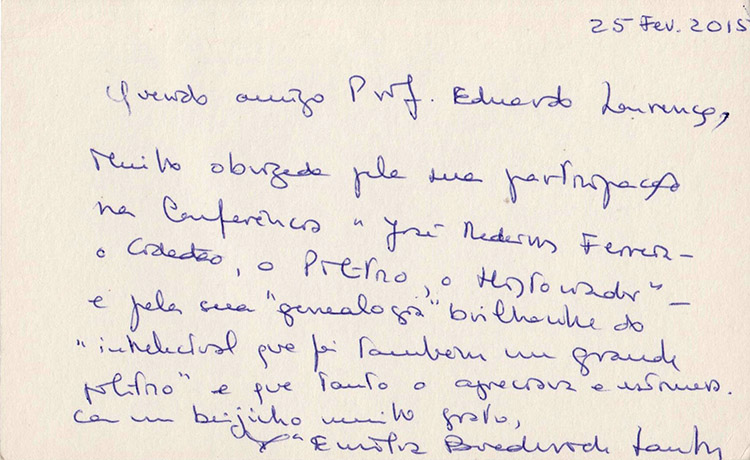 25 Fev. 2015
Querido amigo Prof. Eduardo Lourenço,
Muito obrigada pela sua participação
na Conferência "José Medeiros Ferreira –
o Cidadão, o Político, o Historiador" –
e pela sua "genealogia" brilhante do
"intelectual que foi também um grande
político" e que tanto o apreciava e estimava.
Com um beijinho muito grato,
Emília Brederode Santos